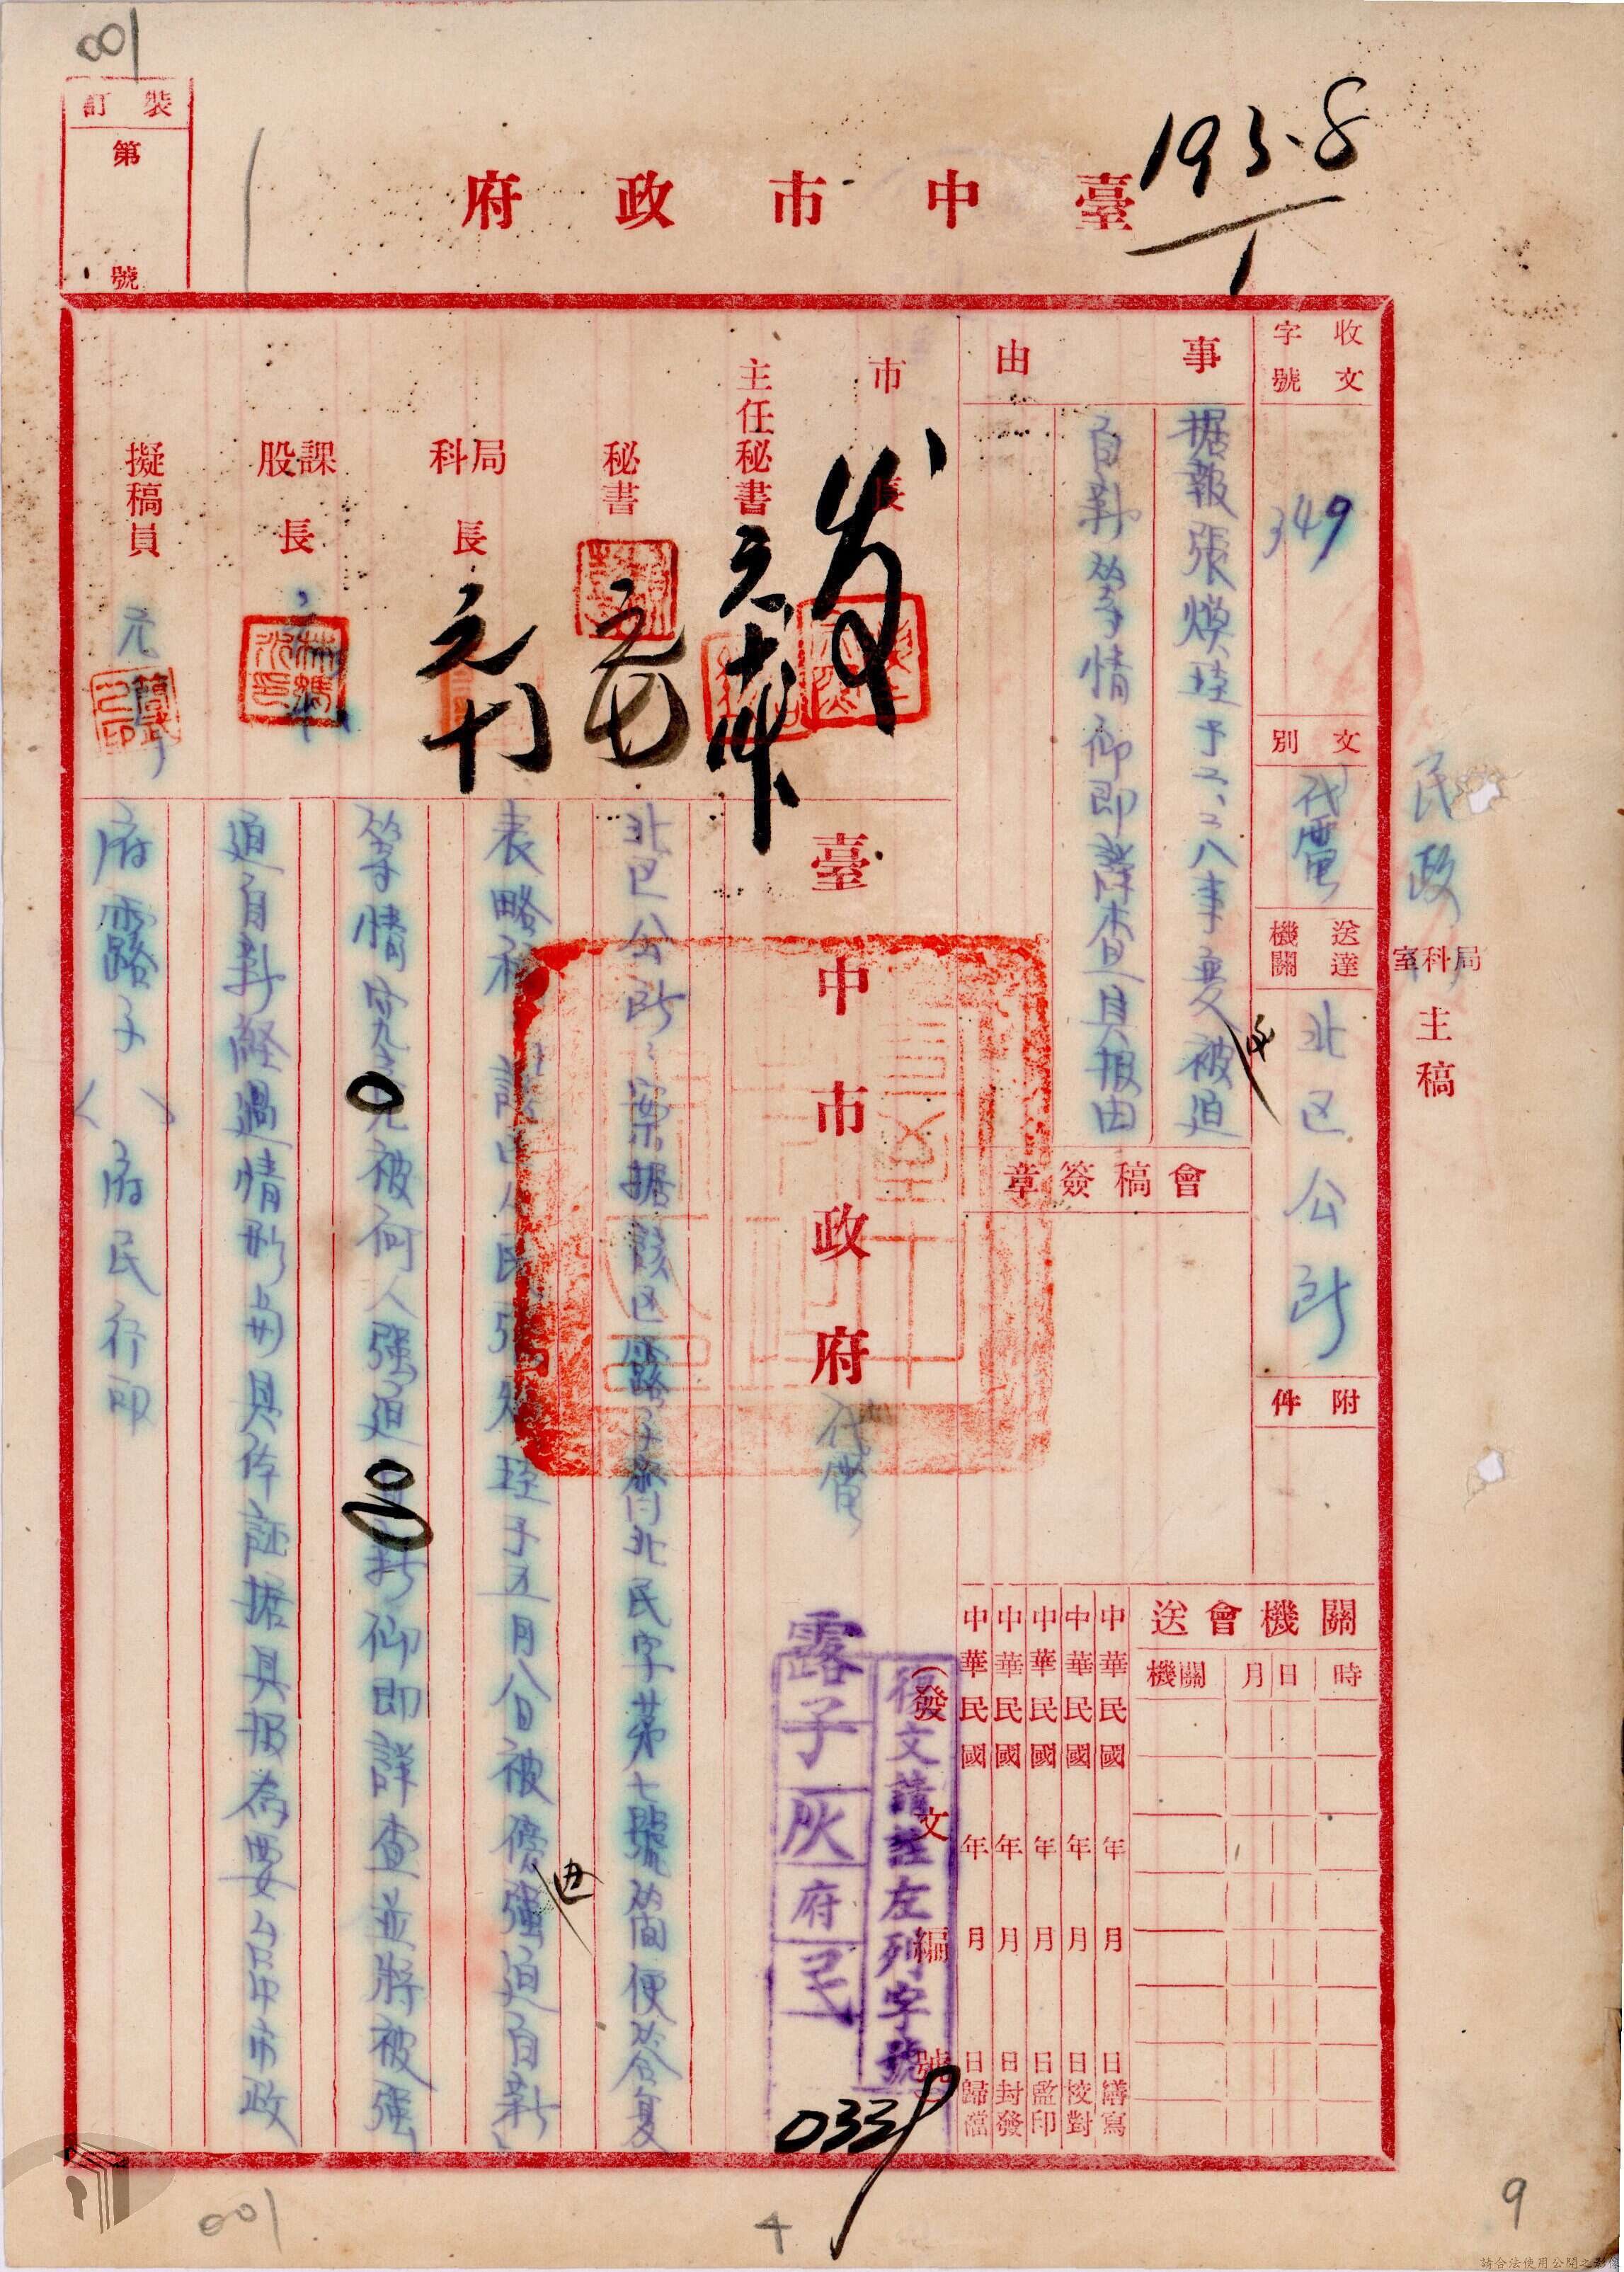 001
裝訂
第
號
193.8
1
臺中市政府
民政
局科室
主稿
收文
字號
349
文別
代電
送達
機關
北区公所
附件
事由
据報張煥珪于二、二八事変被迫
自新等情仰即詳查具报由
會稿簽章
關機會送
時
日
月
機關
中華民國 年 月 日繕寫
中華民國 年 月 日校對
中華民國 年 月 日監印
中華民國 年 月 日封發
中華民國 年 月 日歸檔
市長
主任秘書
秘書
局科長
課股長
擬稿員
臺中市政府
代電
(發文編號)
復文請註左列字號
露子灰府民
0339
北区公所:案據該区露子 北民字第七號简便答复
表略称 人民張 珪于五月八日被傍強迫自新
等情究 被何人強迫 新仰即詳查並将被强
迫自新経過情形 具体証据具报為要台中市政
府露子( )府民行印
001
4
9
請合法使用公開之影像